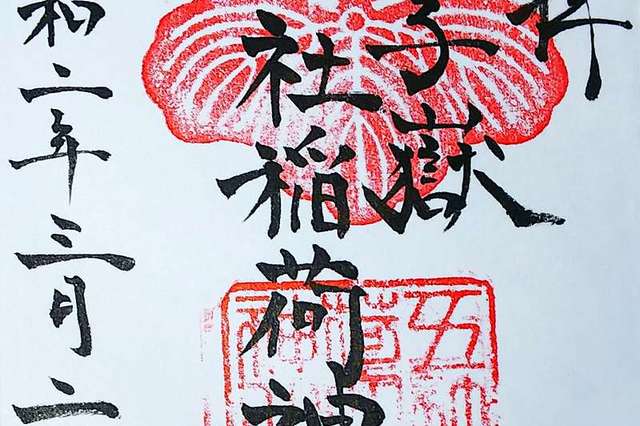 拝
子嶽
社稲荷神
和二年三月二